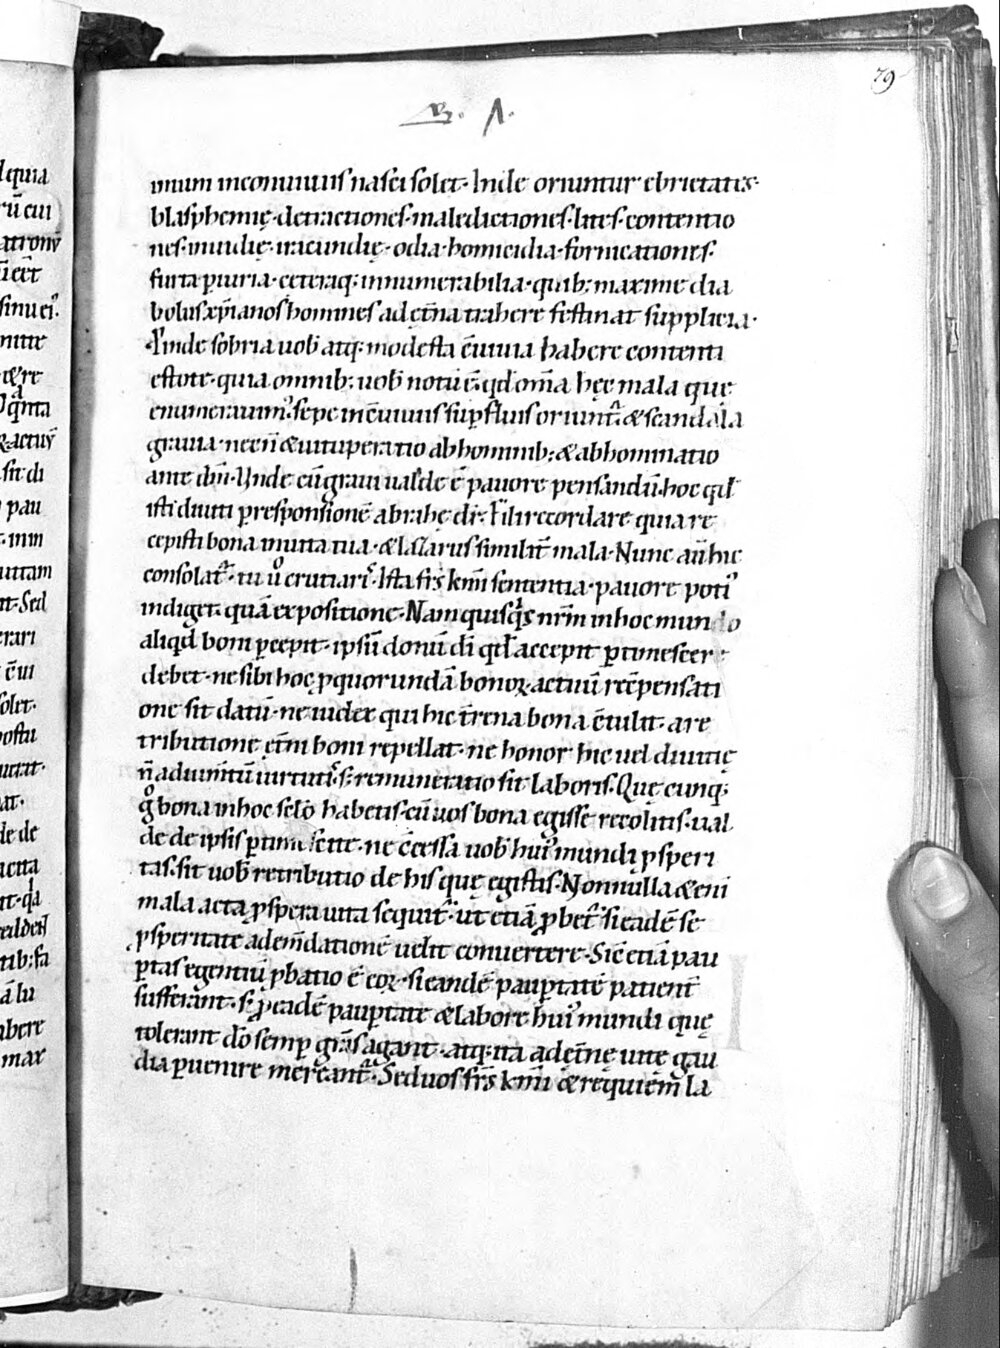 79
R. A.
imum inconuiuiis nasci solet· Inde oriuntur ebrietates·
blasphemię· detractiones· maledictiones· lites· contentio
nes· inuidię· iracundię· odia· homicidia· fornicationes·
furta ꝑiuria· ceteraq; innumerabilia· quib; maxime dia
bolus xp̄ianos homines ad et̄na trahere festinat supplicia·
Proinde sobria uob̄ atq; modesta c̄uiuia habere contenti
estote· quia omnib; uob̄ notū ē· qd̄ om̄a hęc mala quę
enumerauim᾽ sepe in c̄uiuiis suꝑfluis oriunt᷑· & scandala
grauia· necn̄ & uituperatio ab hominib; & abhominatio
ante dn̄m· Vnde cū graui ualde ē pauore pensandū· hoc qd̄
isti diuiti ꝑ responsionē abrahę dr̄· Fili recordare quia re
cepisti bona in uita tua· & lazarus similit̄ mala· Nunc aū hic
consolat᷑· tu ů cruciaris· Ista frs̄ km̄i sententia· pauore poti᾽
indiget· quā expositione· Nam quisq̇s nr̄m in hoc mundo
aliqd̄ boni ꝑcepit· ipsū donū dī qd̄ accepit ꝑtimescer
debet· ne sibi hoc ꝓ quorundā bonoꝝ actuū rec̄pensati
one sit datū· ne iudex qui hic t̄rena bona c̄tulit· a re
tributione ęt̄ni boni repellat· ne honor hic uel diuitię
n̄ adium̄tū uirtutis· s; remuneratio sit laboris· Quęcunq;
g̊ bona in hoc sc̄lo habetis· cū uos bona egisse recolitis· ual
de de ipsis ꝑtimescite· ne c̄cessa uob̄ hui᾽ mundi ꝓsperi
tas· sit uob̄ retributio de his quę egistis· Nonnulla & eni
mala acta ꝓspera uita sequit᷑· ut etiā ꝓbet᷑· si eadē se
ꝓsperitate ad em̄dationē uelit conuertere· Sic etiā pau
ꝑtas egentiū ꝓbatio ē eoꝝ· si eandē pauꝑtatē patient̄
sufferant· s; ꝓ eadē pauꝑtate & labore hui᾽ mundi quę
tolerant dō semꝑ grās agant· atq; ita ad ęt̄nę uitę gau
dia ꝑuenire mereant᷑· Sed uos frs̄ km̄i & requiem̄ la